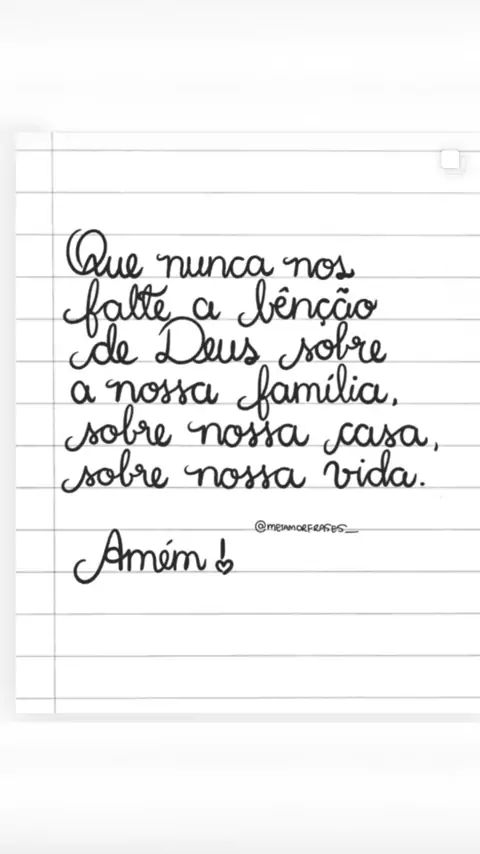 Que nunca nos
falte a bênção
de Deus sobre
a nossa família,
sobre nossa casa,
sobre nossa vida.
@METAMORFRASES__
Amém!